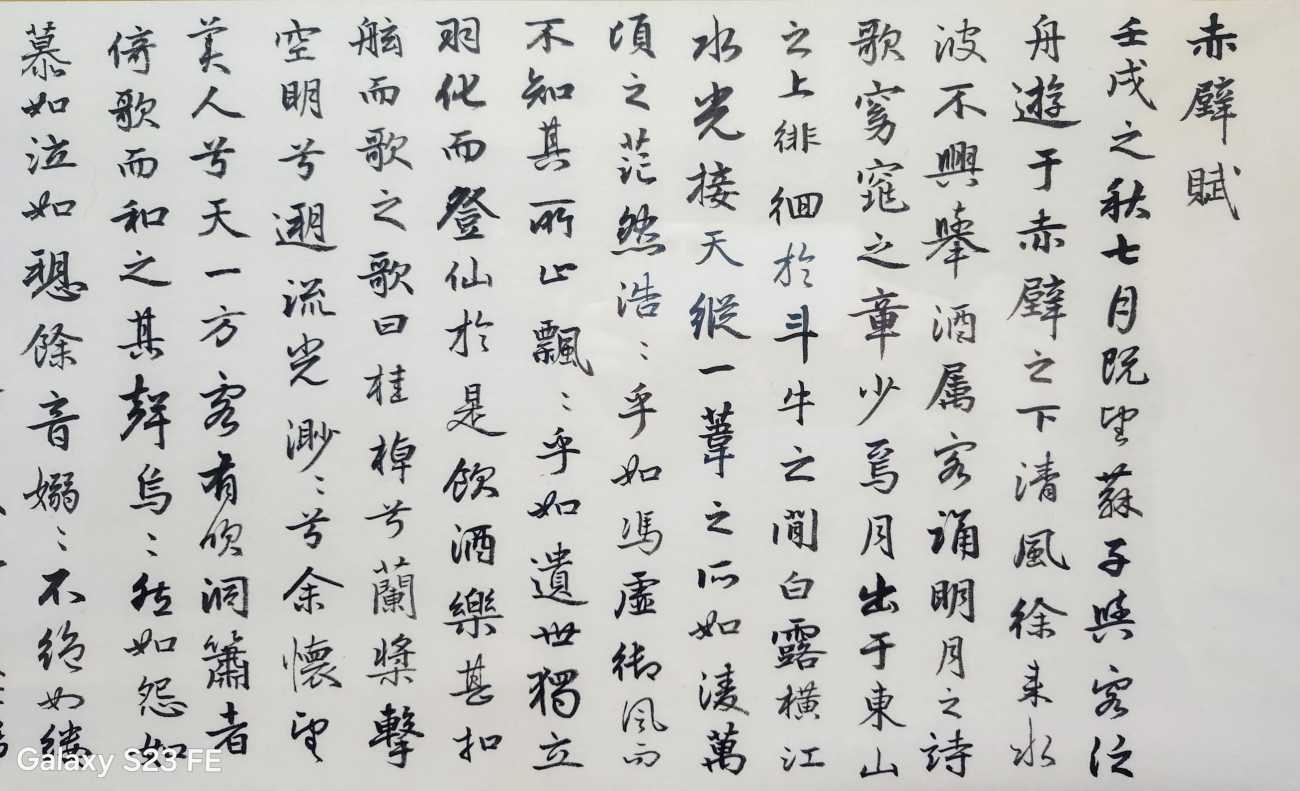 赤壁賦
壬戌之秋七月既望蘇子與客泛
舟遊于赤壁之下清風徐来水
波不興舉酒属客誦明月之詩
歌窈窕之章少焉月出于東山
之上徘徊於斗牛之間白露橫江
水光接天縱一葦之所如淩萬
頃之茫然浩〻乎如馮虛御風而
不知其所止飄〻乎如遺世獨立
羽化而登仙於是飲酒樂甚扣
舷而歌之歌曰桂棹兮蘭槳擊
空明兮遡流光渺〻兮余懷望
美人兮天一方客有吹洞簫者
倚歌而和之其聲烏〻然如怨如
慕如泣如 餘音嫋〻不絕如縷
Galaxy S23 FE